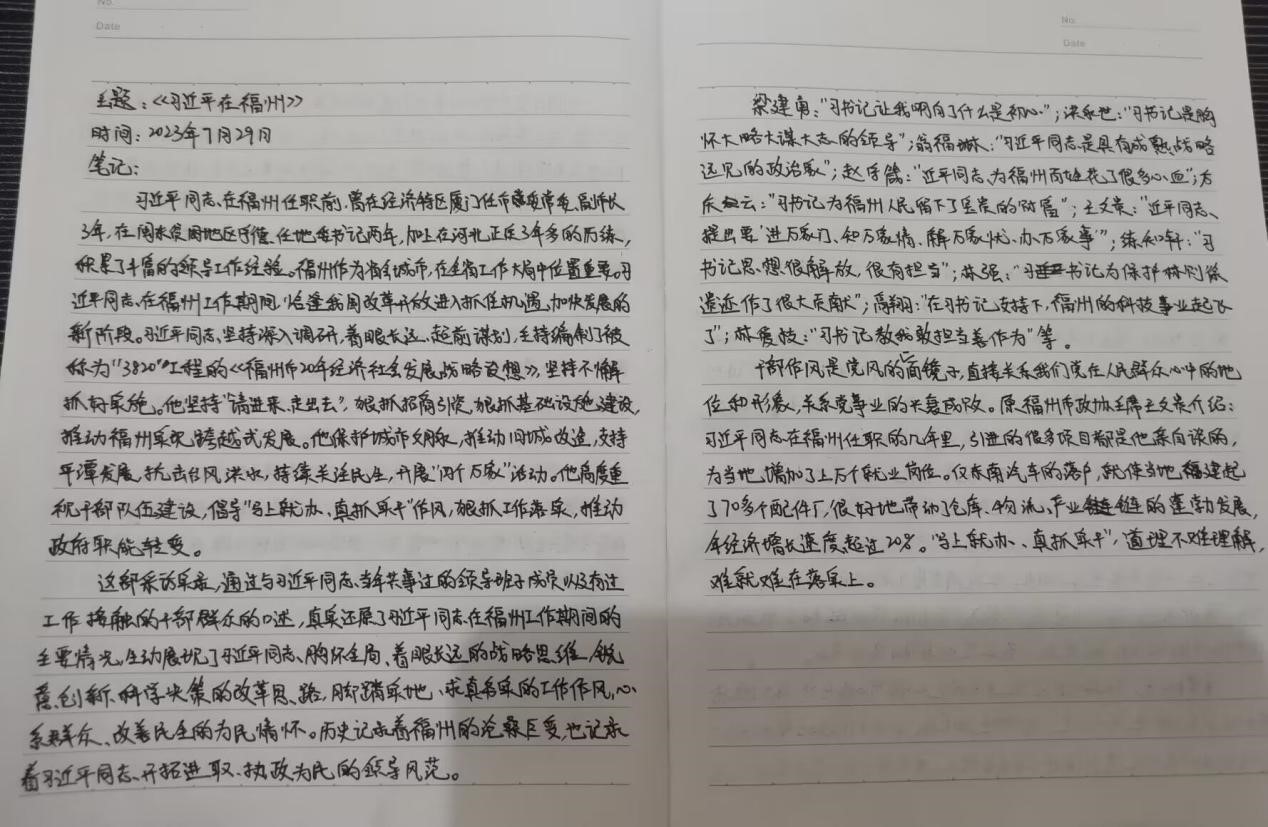 No.
Date
主题：《习近平在福州》
时间：2023年7月29日
笔记：
习近平同志在福州任职前，曾在经济特区厦门任市委常委、副市长
3年，在闽东贫困地区宁德任地委书记两年，加上在河北正定3年多的历练，
积累了丰富的领导工作经验。福州作为省会城市，在全省工作大局中位置重要。习
近平同志在福州工作期间，恰逢我国改革开放进入抓住机遇、加快发展的
新阶段。习近平同志坚持深入调研，着眼长远、超前谋划，主持编制了被
称为"3820"工程的《福州市20年经济社会发展战略设想》，坚持不懈
抓好实施。他坚持"请进来、走出去"，狠抓招商引资，狠抓基础设施建设，
推动福州实现跨越式发展。他保护城市文脉，推动旧城改造，支持
平潭发展，抗击台风洪水，持续关注民生，开展"四个万家"活动。他高度重
视干部队伍建设，倡导"马上就办、真抓实干"作风，狠抓工作落实，推动
政府职能转变。
这部采访实录，通过与习近平同志当年共事过的领导班子成员以及有过
工作接触的干部群众的口述，真实还原了习近平同志在福州工作期间的
主要情况，生动展现了习近平同志胸怀全局、着眼长远的战略思维，锐
意创新、科学决策的改革思路，脚踏实地、求真务实的工作作风，心
系群众、改善民生的为民情怀。历史记录着福州的沧桑巨变，也记录
着习近平同志开拓进取、执政为民的领导风范。
No.
Date
梁建勇："习书记让我明白了什么是初心"；洪永世："习书记是胸
怀大略大谋大志的领导"；翁福琳："习近平同志是具有成熟战略
远见的政治家"；赵守箴："近平同志为福州百姓花了很多心血"；方
庆云："习书记为福州人民留下了宝贵的财富"；王文贵："近平同志
提出要'进万家门、知万家情、解万家忧、办万家事'"；练知轩："习
书记思想很解放，很有担当"；林强："习书记为保护林则徐
遗迹作了很大贡献"；高翔："在习书记支持下，福州的科技事业起飞
了"；林爱枝："习书记教我敢担当善作为"等。
干部作风是党风的一面镜子，直接关系我们党在人民群众心中的地
位和形象，关系党事业的兴衰成败。原福州市政协主席王文贵介绍：
习近平同志在福州任职的几年里，引进的很多项目都是他亲自谈的，
为当地增加了上万个就业岗位。仅东南汽车的落户，就使当地建起
了70多个配件厂，很好地带动了仓库、物流、产业链的蓬勃发展，
年经济增长速度超过20%。"马上就办、真抓实干"，道理不难理解，
难就难在落实上。